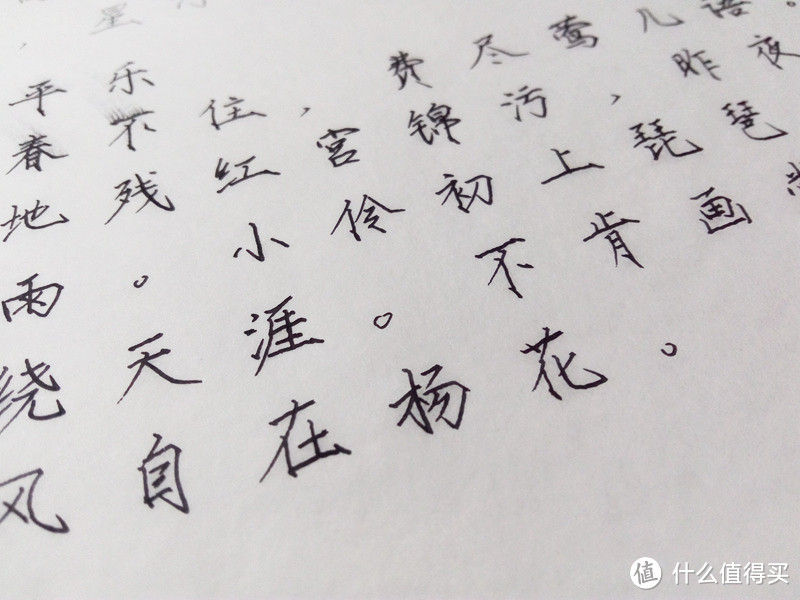 ，星
平乐
春不住，费尽莺儿语。
地残红宫锦污，昨夜
雨。小伶初上琵琶
绕天涯。不肯画
风自在杨花。
值 什么值得买